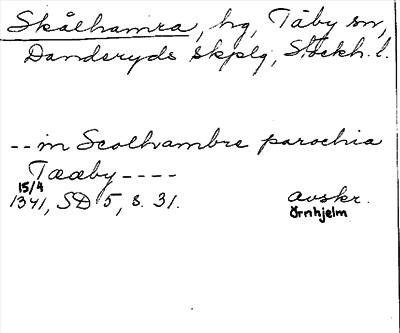 Skålhamra, hg, Täby sn,
Danderyds skplg, Stockh. l.
-- in Scolhambre parochia
Tææby ----
15/4
1341, SD 5, s. 31. avskr.
Örnhjelm